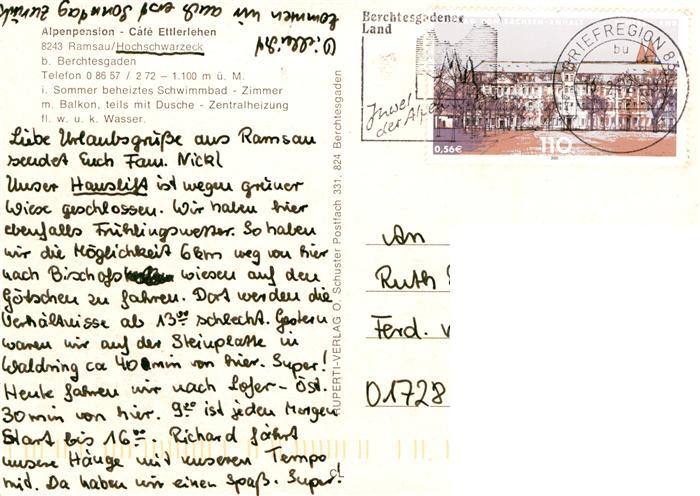 Alpenpension - Café Ettlerlehen
8243 Ramsau/Hochschwarzeck
b. Berchtesgaden
Telefon 0 86 57 / 2 72 – 1.100 m ü. M.
i. Sommer beheiztes Schwimmbad - Zimmer
m. Balkon, teils mit Dusche - Zentralheizung
fl. w. u. k. Wasser.
Liebe Urlaubsgrüße aus Ramsau
sendet Euch Fam. Nickl
Unser Hauslift ist wegen grüner
Wiese geschlossen. Wir haben hier
ebenfalls Frühlingswetter. So haben
wir die Möglichkeit 6 km weg von hier
nach Bischofs wiesen auf den
Götschen zu fahren. Dort werden die
Verhältnisse ab 13⁰⁰ schlecht. Gestern
waren wir auf der Steinplatte in
Waldring ca 40 min von hier. Super!
Heute fahren wir nach Lofer - Öst.
30 min von hier. 9⁰⁰ ist jeden Morgen
Start bis 16⁰⁰. Richard fährt
unsere Hänge mit unseren Tempo
mit. Da haben wir einen Spaß. Super!
kommen wir auch erst Sonntag zurück
RUPERTI-VERLAG O. Schuster Postfach 331, 824 Berchtesgaden
Berchtesgadener
Land
Juwel
der Alpen
VON SACHSEN-ANHALT
0,56€
110
BRIEFREGION 83
bu
An
Ruth
Ferd.
01728